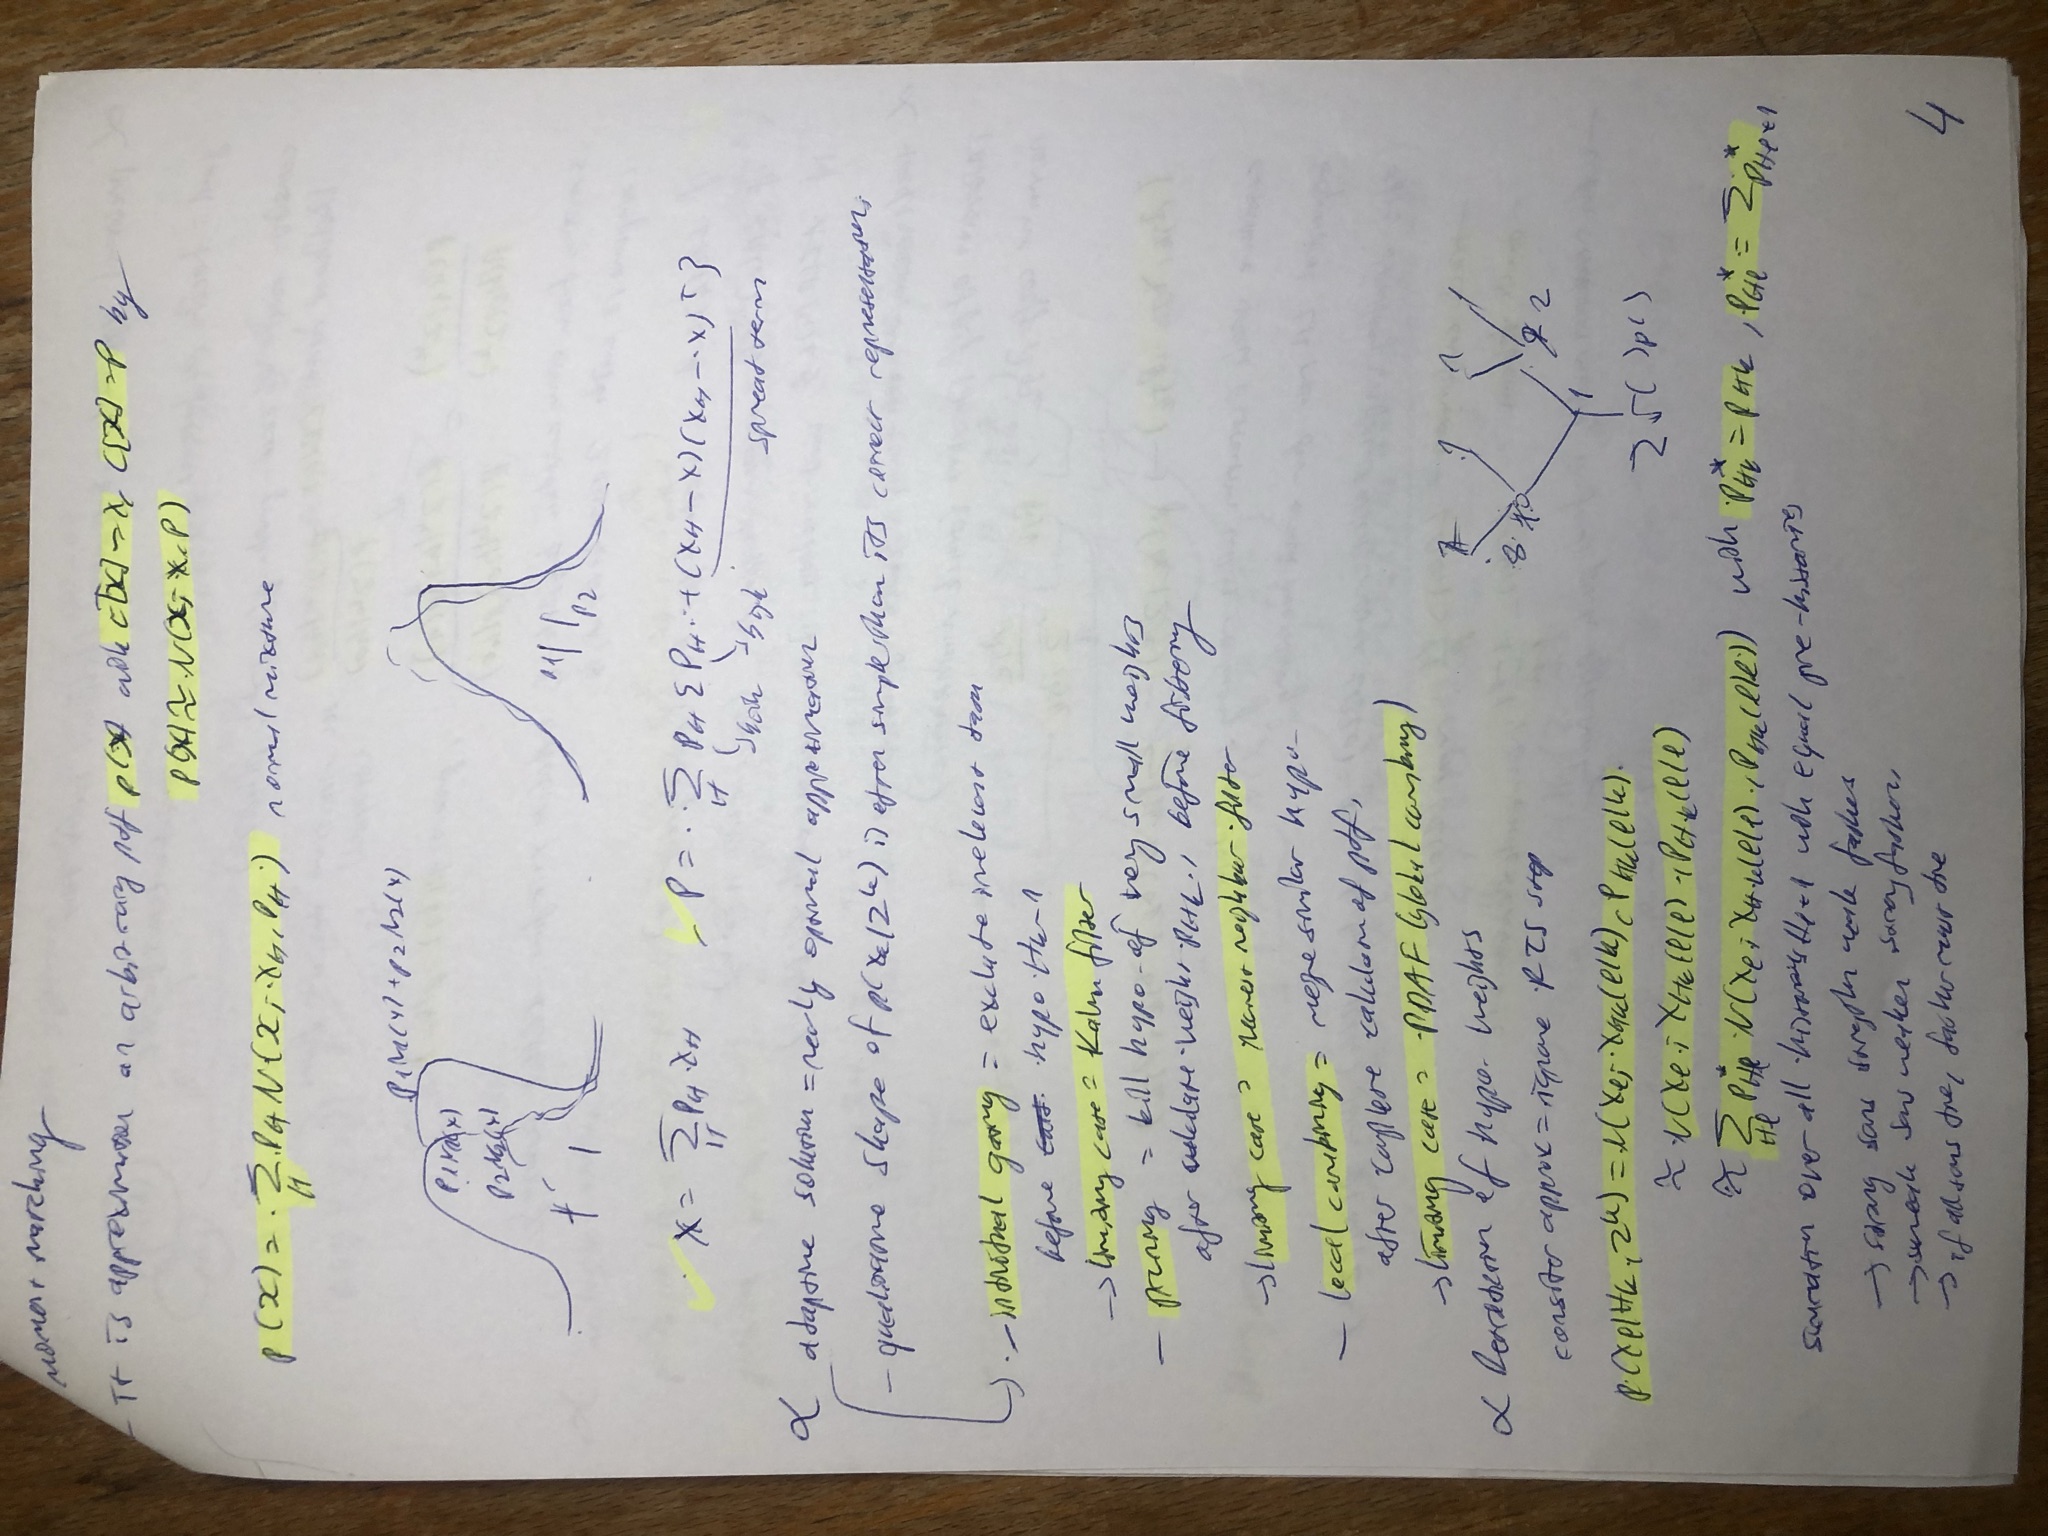 moment matching
- It is approximation an arbitrary pdf p(x) with E[x] = x, C[x] = P by
p(x) ≈ N(x; x, P)
p(x) = Σ_H p_H N(x; x_H, P_H) normal mixture
p1N1(x) + p2N2(x)
p1N1(x)
p2N2(x)
p2
x = Σ_H p_H x_H P = Σ_H p_H { P_H + (x_H - x)(x_H - x)^T }
spread term
α adaptive solution = nearly optimal approximation
- qualitative shape of p(x_k|Z^k) is often simple than its correct representation;
- individual gating = exclude irrelevant data
before hypo. H_k-1
→ limiting case = Kalman filter
- pruning = kill hypo. of very small weights
after calculate weight p_Hk, before filtering
→ limiting case = nearest neighbor filter
- local combining = merge similar hypo-
after complete calculation of pdf,
→ limiting case = PDAF (global combining)
α Retrodiction of hypo. weights
consider approx = ignore RTS step
p(x_l|H_k, Z^k) = N(x_l; x_Hk(l|k), P_Hk(l|k))
≈ N(x_l; x_Hk(l|l), P_Hk(l|l))
≈ Σ_Hl p*_Hl N(x_l; x_Hl(l|l), P_Hl(l|l)) with p*_Hk = p_Hk, p*_Hl = Σ p*_Hl+1
summation over all histories H_l+1 with equal pre-histories
→ strong sons strengthen weak fathers
→ weak sons weaken strong fathers,
→ if all sons die, father must die
4